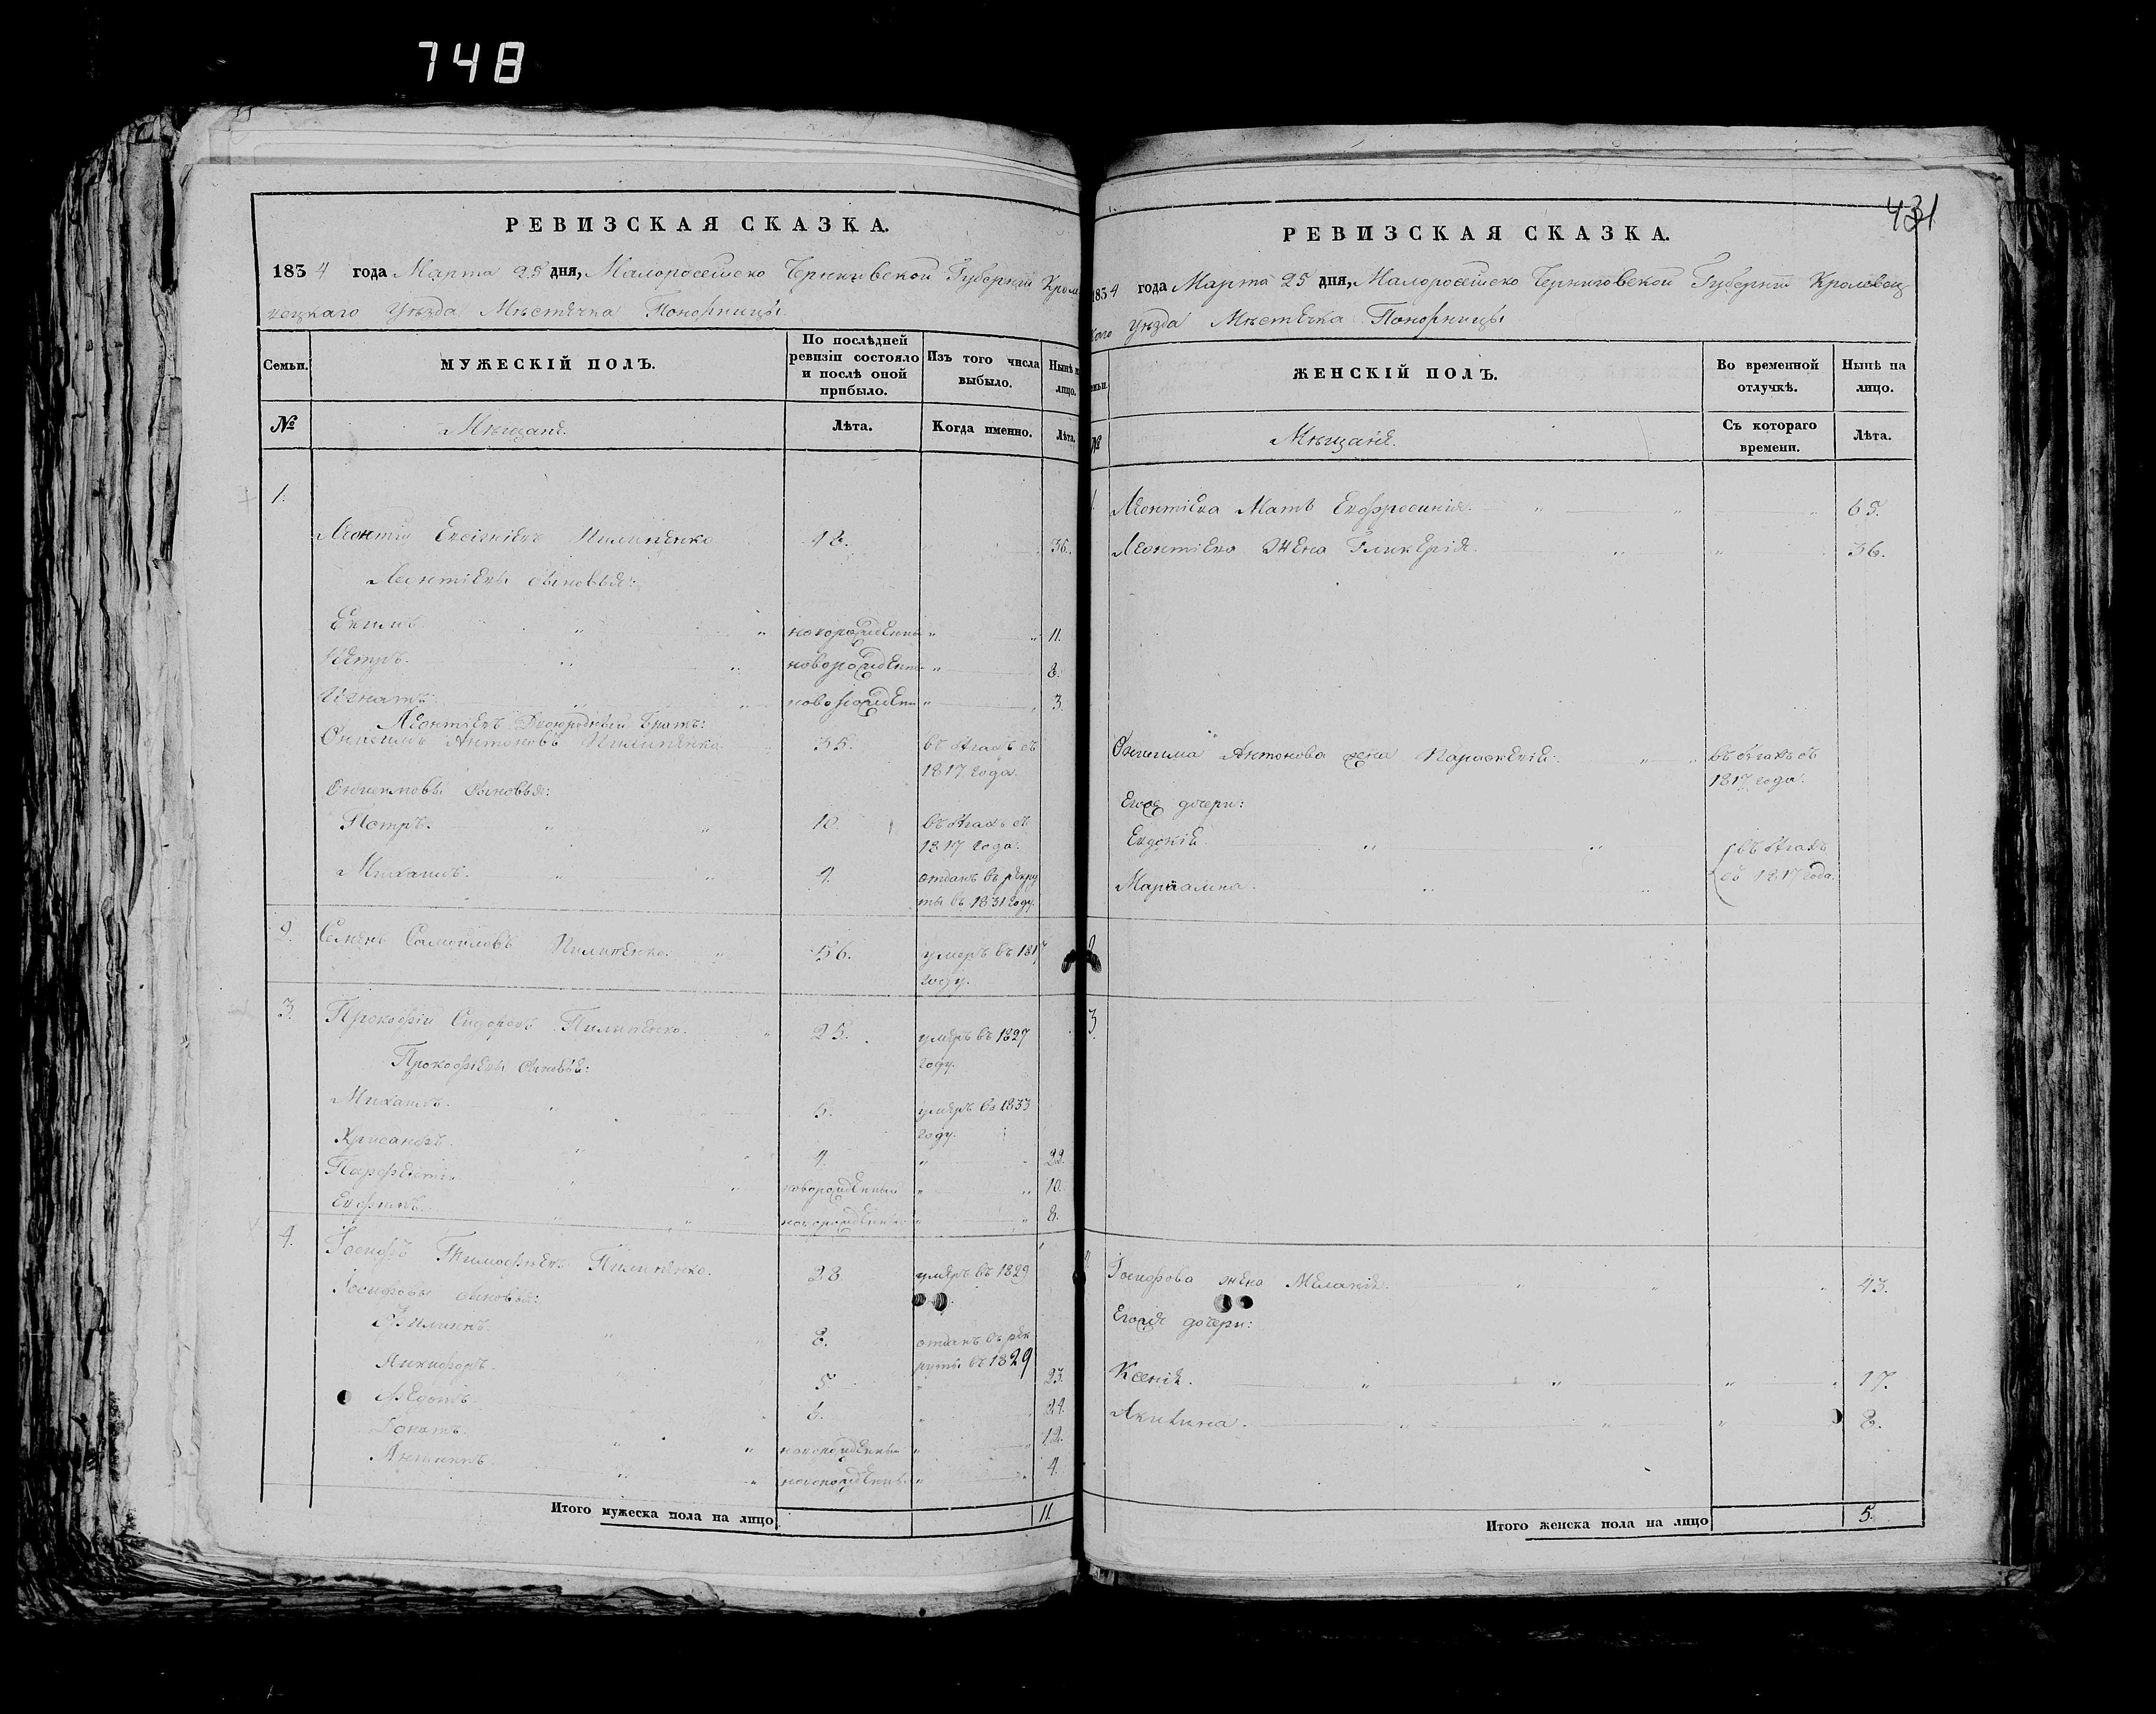 748
431
РЕВИЗСКАЯ СКАЗКА.
1834 года Марта 25 дня, Малоросейско Черниговской Губернiи Кролe
вецкаго Уѣзда Мѣстечка Понорницы
Семьи.
МУЖЕСКІЙ ПОЛЪ.
По послѣдней ревизіи состояло и послѣ оной прибыло.
Изъ того числа выбыло.
Нынѣ на лицо.
№
Мѣщане.
Лѣта.
Когда именно.
Лѣта.
1.
Леонтій Пилипенко 36.
Леонтіевы сыновья:
Екимъ новорожденный 11.
Петръ. новорожденный 8.
Игнатъ. новорожденный 3.
Леонтіевъ Двоюродный братъ:
Онисимъ Антоновъ Пилипенко 35. въ бѣгахъ съ
1817 года.
Онисимовы сыновья:
Петръ. 10. въ бѣгахъ съ
1817 года.
Михаилъ. 4. отданъ въ рекру
ты въ 1831 году.
2. Семенъ Самойловъ Пилипенко. 56. умеръ въ 1817
году.
3. Прокофій Сидоровъ Пилипенко. 25. умеръ въ 1827
году.
Прокофіевы сыновья:
Михаилъ. 5. умеръ въ 1833
году.
Хрисанфъ. 4. 22.
Парфентій новорожденный 10.
Евфимъ. новорожденный 8.
4. Іосифъ Тимофѣевъ Пилипенко. 28 умеръ въ 1829
Іосифовы сыновья:
Филипъ. 8. отданъ въ рек
руты въ 1829
Никифоръ. 5. 23.
Федотъ. 6. 24.
Игнатъ. новорожденный 12.
Антипъ. новорожденный 4.
Итого мужеска пола на лицо 11.
РЕВИЗСКАЯ СКАЗКА.
1834 года Марта 25 дня, Малоросейско Черниговской Губернiи Кролевец
каго Уѣзда Мѣстечка Понорницы
Семьи.
ЖЕНСКІЙ ПОЛЪ.
Во временной отлучкѣ.
Нынѣ на лицо.
№
Мѣщане.
Съ котораго времени.
Лѣта.
1. Леонтіева Мать Евфросинія. 65.
Леонтіева Жена Гликерія. 36.
Онисима Антонова жена Параскевія. въ бѣгахъ съ
1817 года.
Егожъ дочери:
Евдокія. въ бѣгахъ
Маріамна. съ 1817 года.
2
3.
4 Іосифова жена Меланія. 43.
Егожъ дочери:
Ксенія. 17.
Акилина. 8.
Итого женска пола на лицо 5.